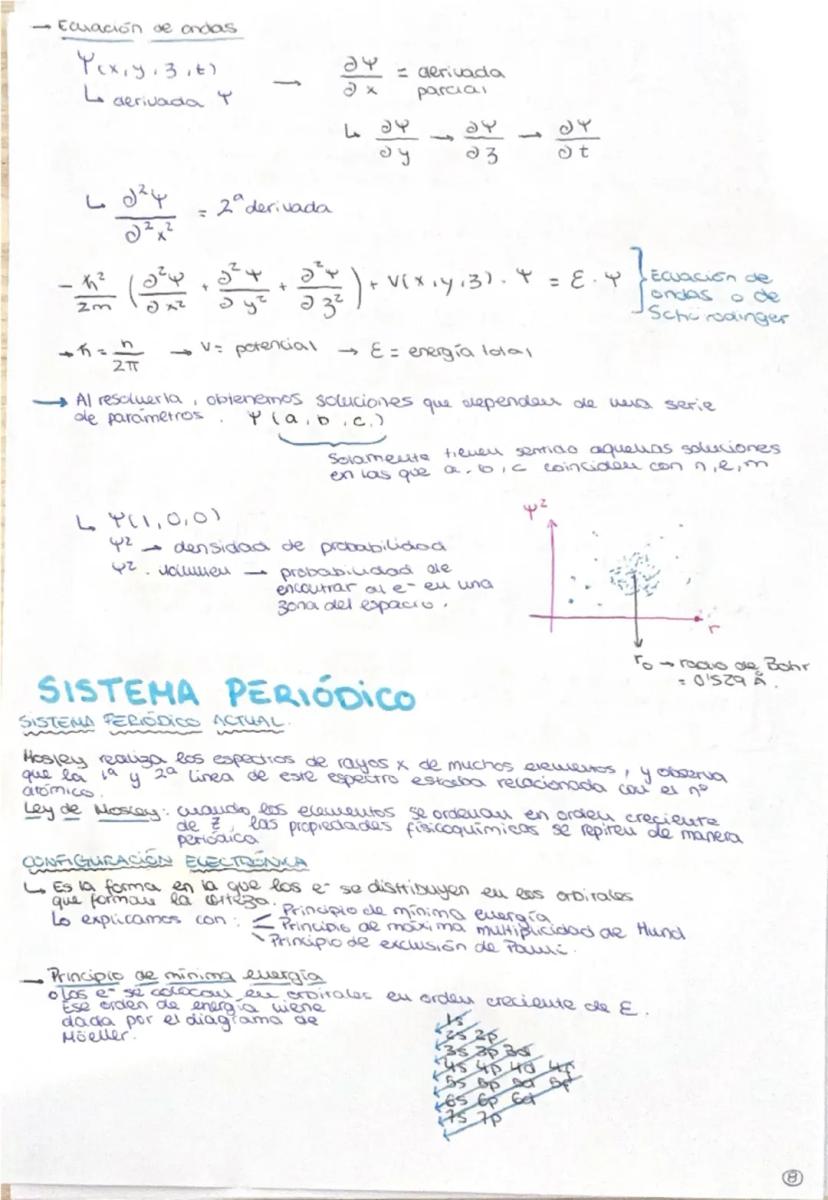 → Ecuación de ondas
Ψ(x, y, z, t) → ∂Ψ/∂x = derivada parcial
↳ derivada Ψ
↳ ∂Ψ/∂y → ∂Ψ/∂z → ∂Ψ/∂t
↳ ∂²Ψ/∂²x² = 2ª derivada
-ħ²/2m (∂²Ψ/∂x² + ∂²Ψ/∂y² + ∂²Ψ/∂z²) + V(x, y, z) · Ψ = E · Ψ } Ecuación de
ondas o de
Schürodinger
→ ħ = h/2π → V = potencial → E = energía total
→ Al resolverla, obtenemos soluciones que dependen de una serie
de parámetros. Ψ(a, b, c,)
Solamente tienen sentido aquellas soluciones
en las que a, b, c coinciden con n, l, m
↳ Ψ(1,0,0)
Ψ² → densidad de probabilidad
Ψ² · volumen → probabilidad de
encontrar al e⁻ en una
zona del espacio.
Ψ²
r
r₀ → radio de Bohr
= 0'529 Å.
SISTEMA PERIÓDICO
SISTEMA PERIÓDICO ACTUAL.
Mosley realiza los espectros de rayos x de muchos elementos, y observa
que la 1ª y 2ª línea de este espectro estaba relacionada con el nº
atómico.
Ley de Mosley: cuando los elementos se ordenan en orden creciente
de Z, las propiedades fisicoquímicas se repiten de manera
periódica
CONFIGURACIÓN ELECTRÓNICA
↳ Es la forma en la que los e⁻ se distribuyen en los orbitales
que forman la corteza.
Lo explicamos con: Principio de mínima energía
Principio de máxima multiplicidad de Hund
Principio de exclusión de Pauli.
→ Principio de mínima energía
o Los e⁻ se colocan en orbitales en orden creciente de E.
Ese orden de energía viene
dada por el diagrama de
Möeller.
1s
2s 2p
3s 3p 3d
4s 4p 4d 4f
5s 5p 5d 5f
6s 6p 6d
7s 7p
8